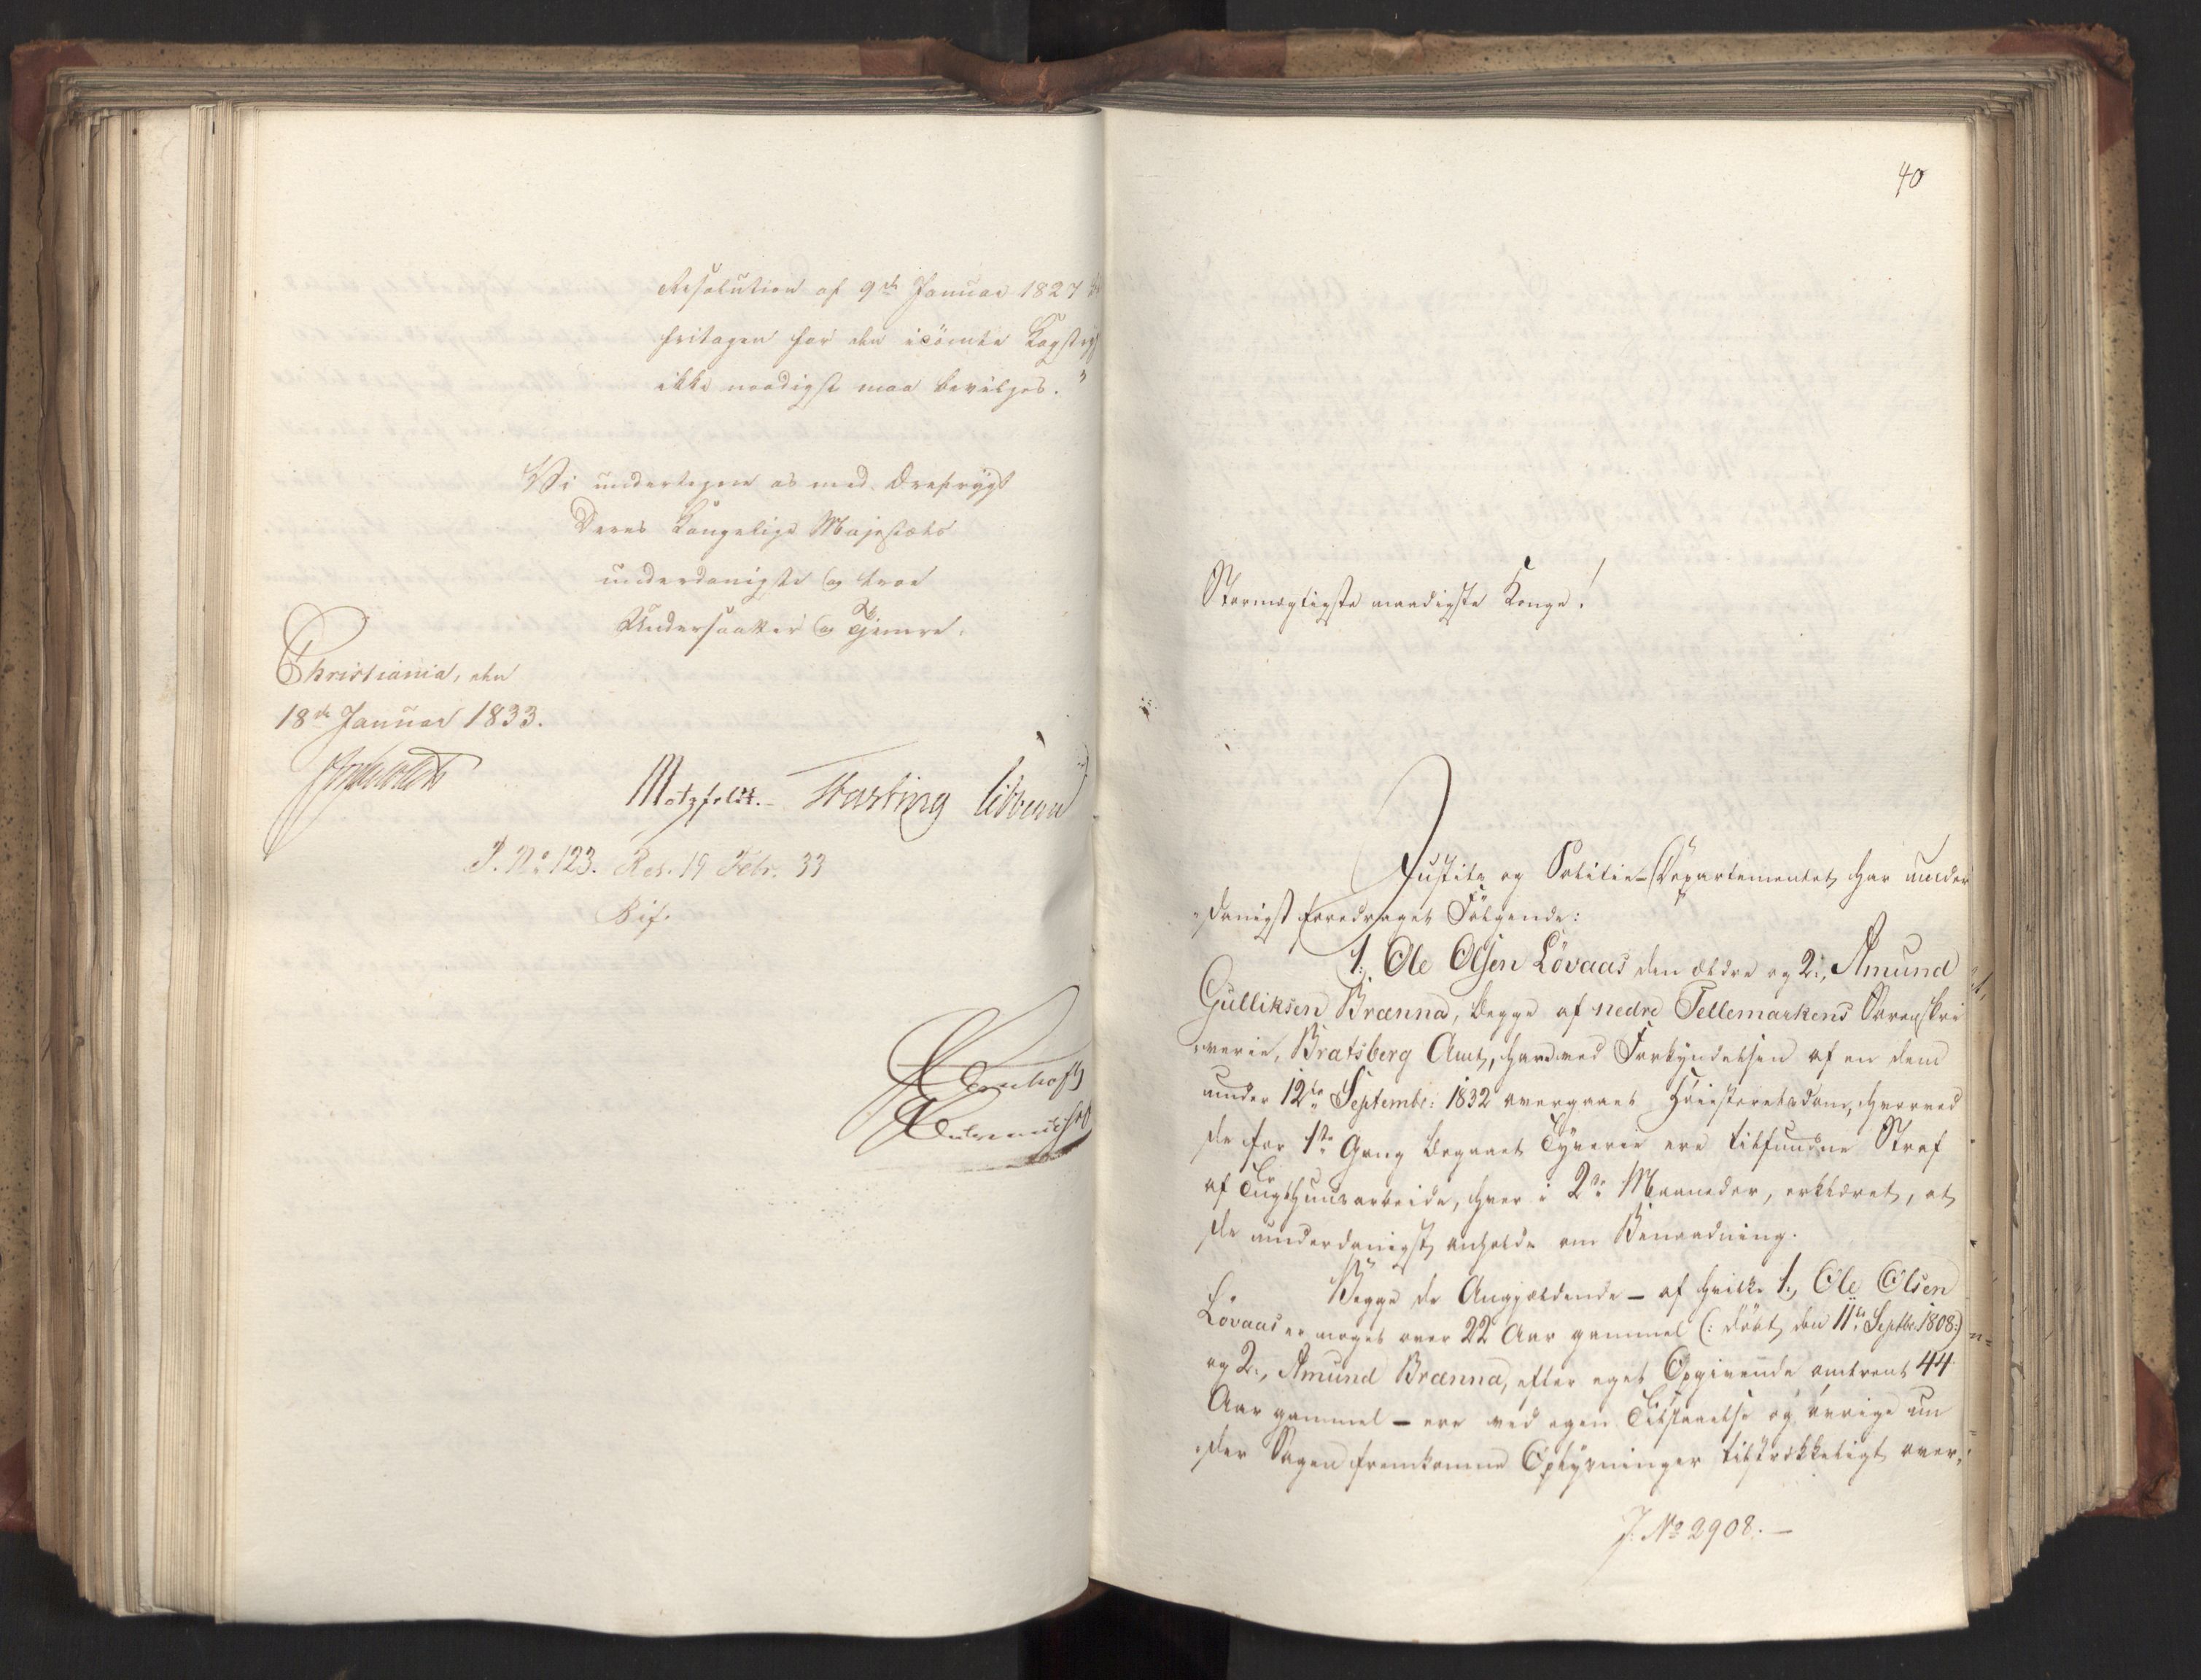 Resolution af 9de Januar 1827
fritagen for den idömte Kagstrygn
ikke naadigst maa bevilges."
Vi undertegne os med Ærefrygt
Deres Kongelige Majestæts
underdanigste og troe
Undersaatter og Tjenere.
Christiania, den
18de Januar 1833.
Motzfeldt. Fasting
J. No 123. Res. 19 Febr. 33
Bif.
40
Stormægtigste naadigste Konge!
Justits og Politie-Departementet har under
danigst foredraget Fölgende:
1., Ole Olsen Lövaas den ældre og 2., Amund
Gulliksen Brænna, begge af nedre Tellemarkens Sorenskri
verie, Bratsberg Amt, have ved Forkyndelsen af en dem
under 12te Septembr: 1832 overgaaet Höiesteretsdom, hvorved
de for 1ste Gang begaaet Tyverie ere tilfundne Straf
af Tugthuusarbeide, hver i 2de Maaneder, erklæret, at
de underdanigst anholde om Benaadning.
Begge de Angjældende - af hvilke 1., Ole Olsen
Lövaas er noget over 22 Aar gammel (: döbt den 11te Septbr. 1808:)
og 2., Amund Brænna, efter eget Opgivende omtrent 44
Aar gammel - ere ved egen Tilstaaelse og övrige un
der Sagen fremkomne Oplysninger tilstrækkeligt over,
J. No 2908. -